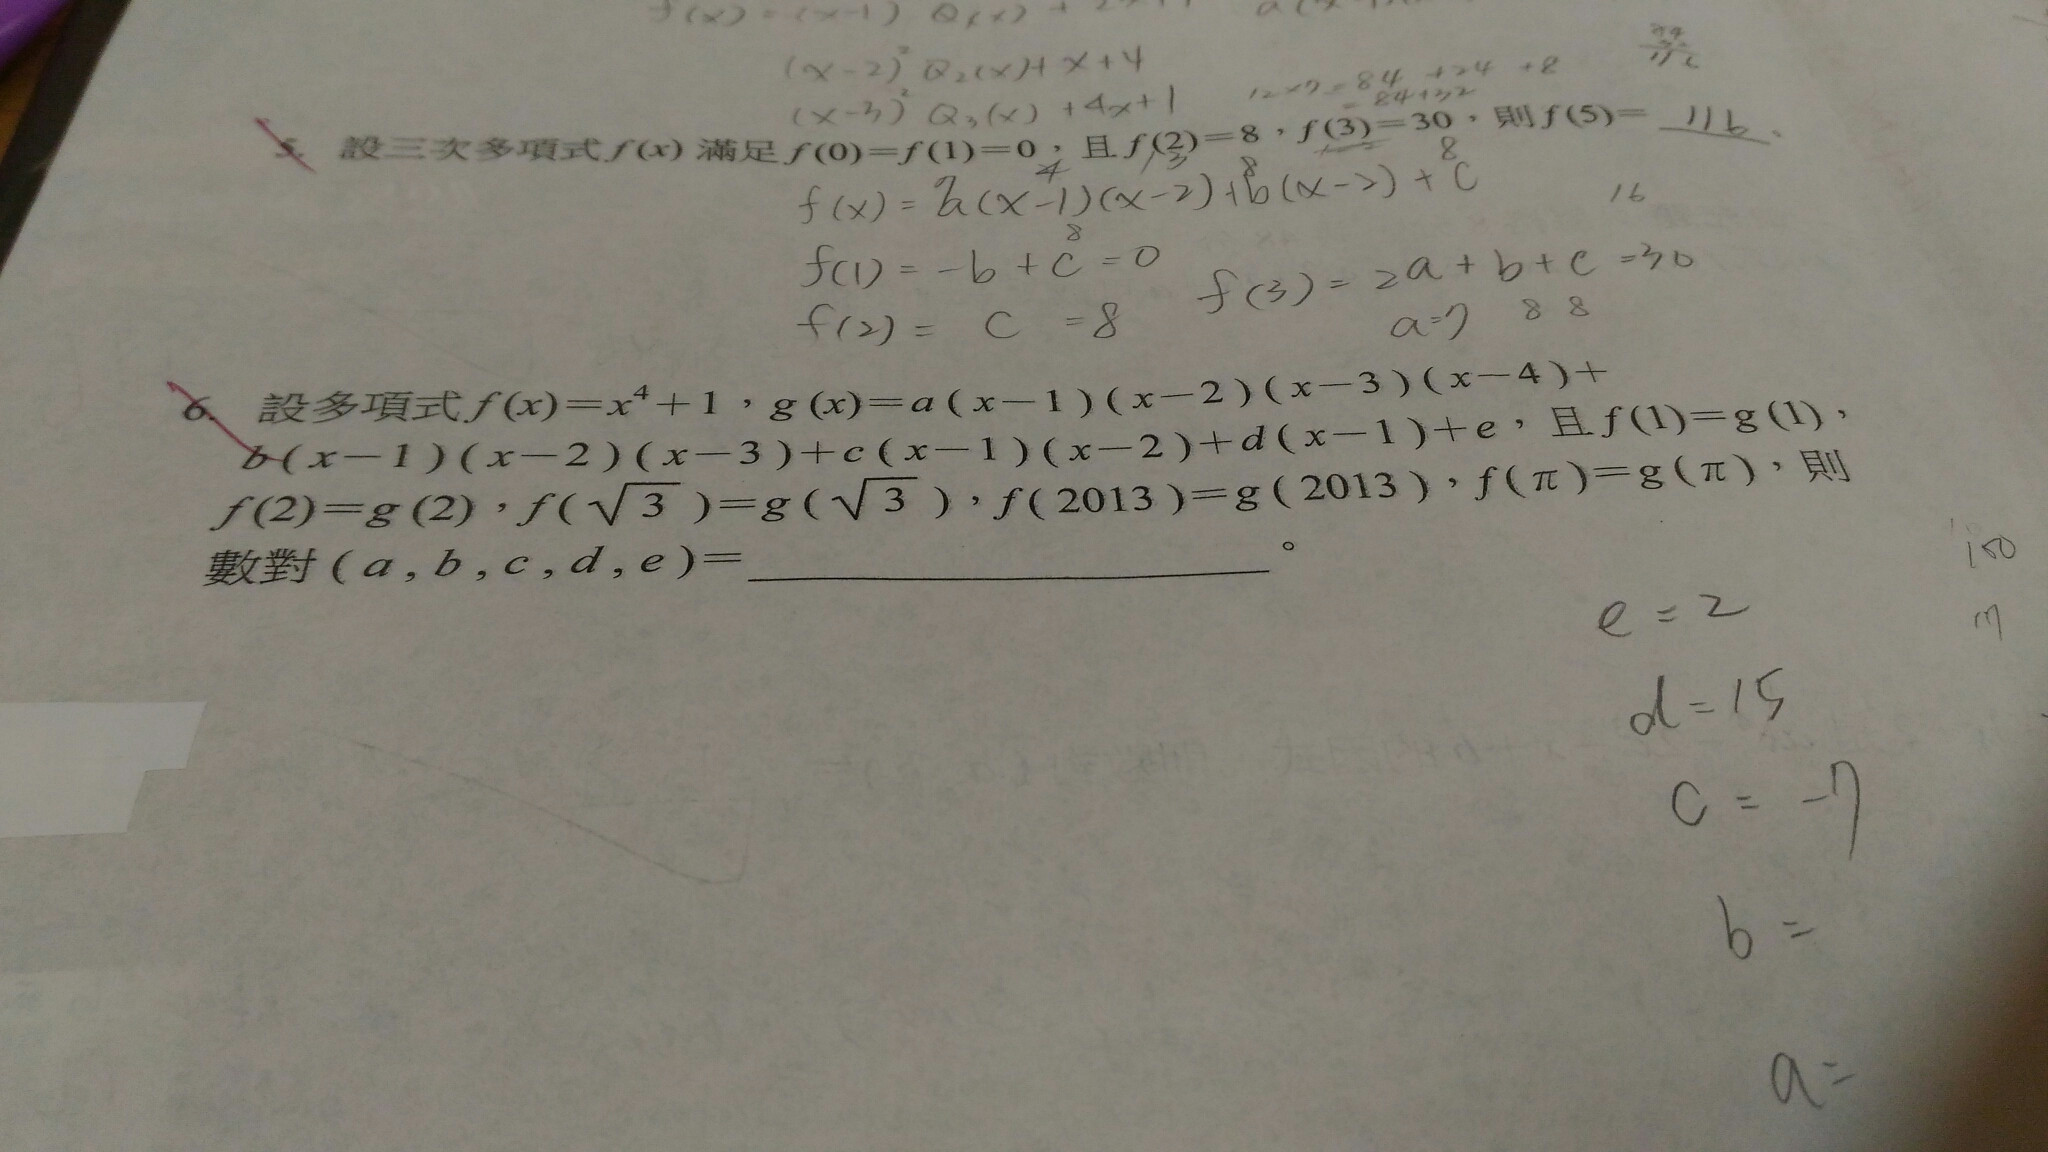 f(x) = (x-1) Q₁(x) +
(x-2)² Q₂(x)+ x+4
(x-3)² Q₃(x) +4x+1
12×7=84 +24 +8
= 84+32
5. 設三次多項式f(x) 滿足f(0)=f(1)=0，且f(2)=8，f(3)=30，則f(5)= 116 .
f(x) = a(x-1)(x-2)+b(x-2)+C
16
f(1) = -b + c = 0
f(3) = 2a + b + c = 30
f(2) = C = 8
a=7 8 8
6. 設多項式f(x)=x⁴+1，g(x)=a(x-1)(x-2)(x-3)(x-4)+
b(x-1)(x-2)(x-3)+c(x-1)(x-2)+d(x-1)+e，且f(1)=g(1)，
f(2)=g(2)，f(√3)=g(√3)，f(2013)=g(2013)，f(π)=g(π)，則
數對(a,b,c,d,e)=____________。
e = 2
d = 15
C = -7
b =
a=